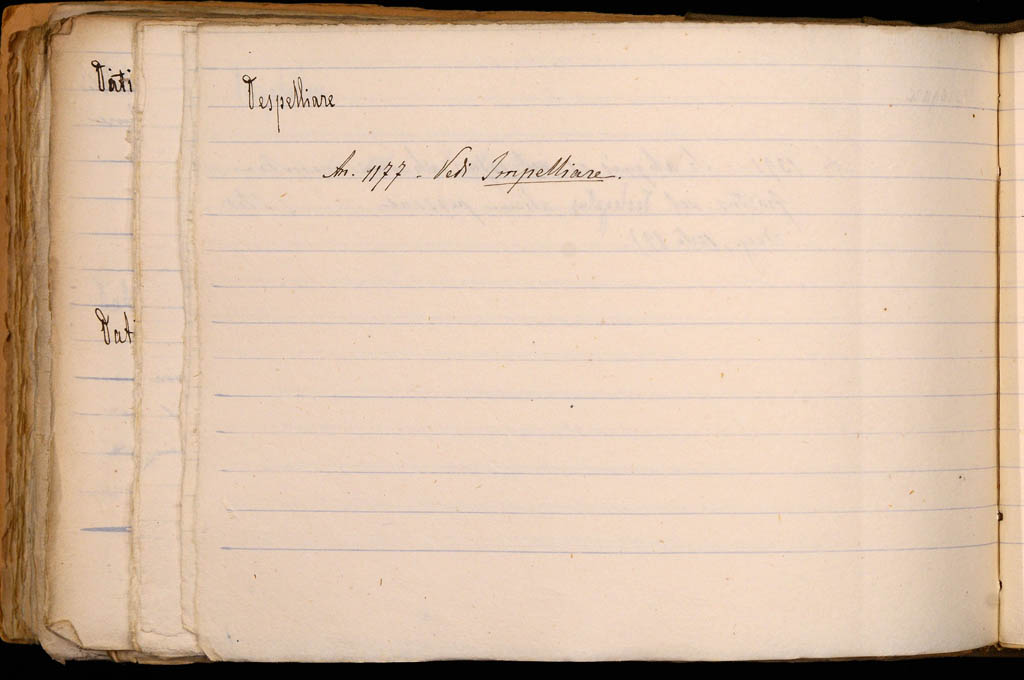 Dati
Despelliare
An. 1177 - Vedi Impelliare.
Dat